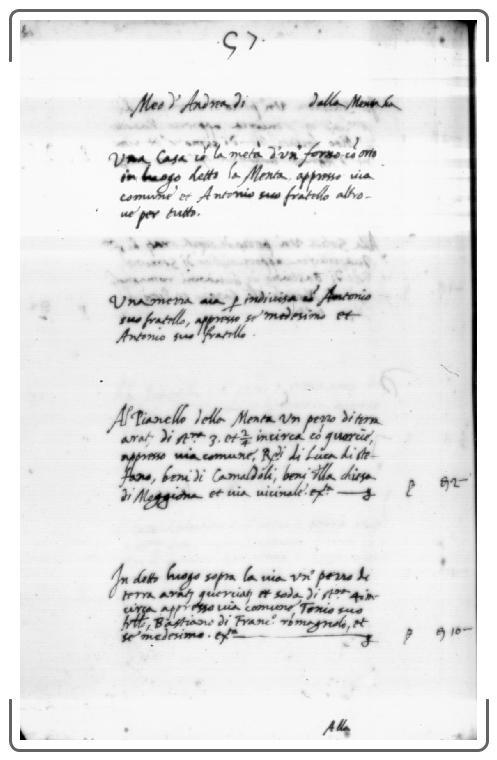 57.
Meo d'Andrea di dalla Menta
Una Casa cõ la metà d'un forno cõ orto
in luogo detto la Menta. appresso via
comune et Antonio suo fratello altro-
ve per tutto.
Una mezza aia p indivisa cõ Antonio
suo fratello, appresso se medesimo et
Antonio suo fratello.
Al Pianello della Menta Un pezzo di terra
di 3. et 2/4 incirca cõ quercie,
appresso via comune, Redi di Luca di Ste-
fano, beni di Camaldoli, beni della chiesa
di Moggiona et via vicinale.
In detto luogo sopra la via un pezzo di
terra et soda di 4. in-
circa appresso via comune, Tonio suo
frtllo, Bastiano di Franc.o romagnolo, et
se medesimo.
Alla